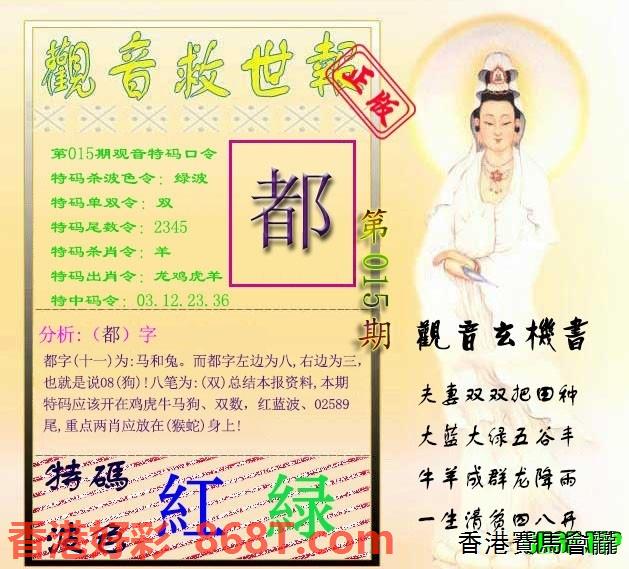 觀音救世報
正版
第015期观音特码口令
特码杀波色令：绿波
特码单双令：双
特码尾数令：2345
特码杀肖令：羊
特码出肖令：龙鸡虎羊
特中码令：03.12.23.36
都
第015期
分析:（都）字
都字(十一)为:马和兔。而都字左边为八,右边为三，
也就是说08(狗)!八笔为:(双)总结本报资料,本期
特码应该开在鸡虎牛马狗、双数，红蓝波、02589
尾,重点两肖应放在(猴蛇)身上!
觀音玄機書
夫妻双双把田种
大蓝大绿五谷丰
牛羊成群龙降雨
一生清贫四八开
特碼
波色
紅 绿
香港好彩 868T.com
香港賽馬會